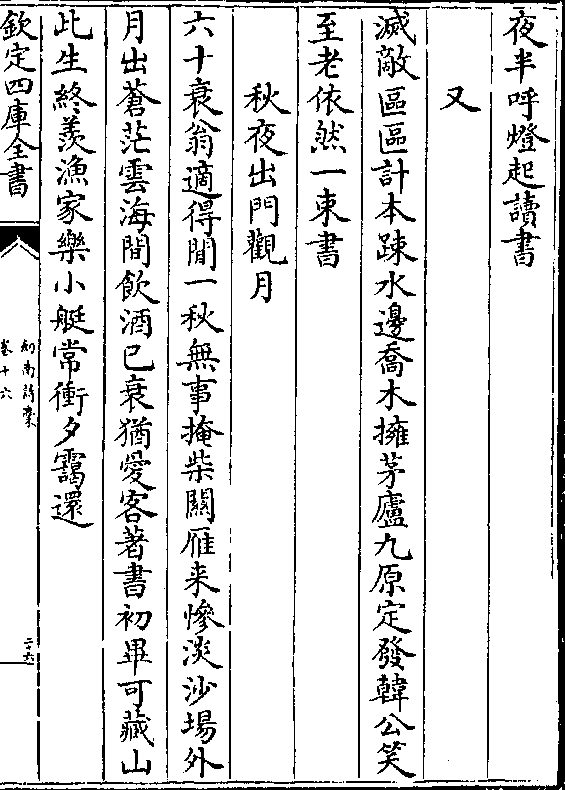 夜半呼燈起讀書
又
滅敵區區計本疎水邊喬木擁茅廬九原定發韓公笑
至老依然一束書
秋夜出門觀月
六十衰翁適得閒一秋無事掩柴關雁来慘淡沙場外
月出蒼茫雲海間飲酒已衰猶愛客著書初畢可藏山
此生終羡漁家樂小艇常衝夕靄還
欽定四庫全書
劍南詩槀
卷十六